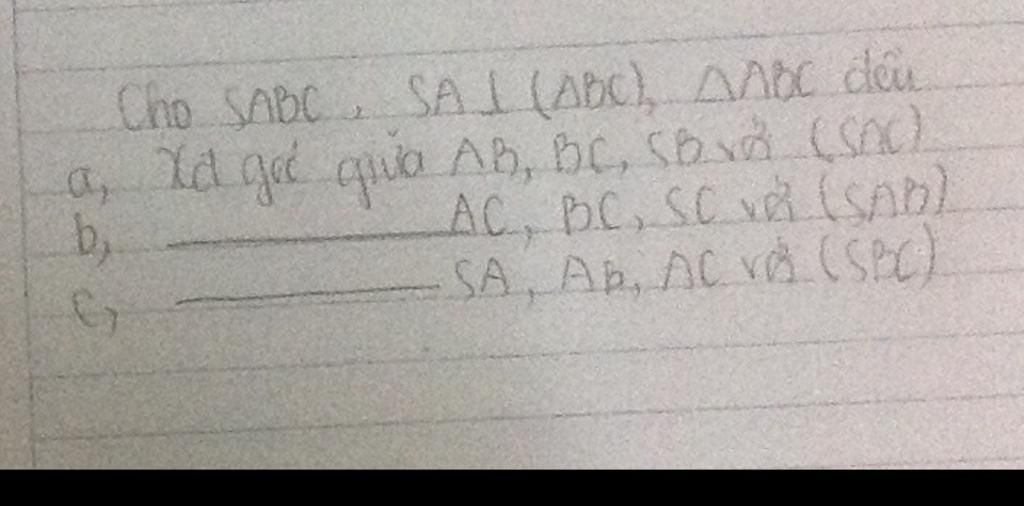 Cho SABC, SA⊥(ABC), ΔABC đều
a, Xđ góc giữa AB, BC, SB với (SAC)
b, ________ AC, BC, SC với (SAB)
c, ________ SA, AB, AC với (SBC)